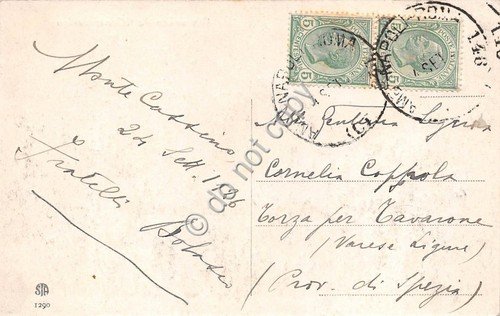 Monte Cassino,
24 Sett. 1926
Fratelli
Alla Gentile Signora
Cornelia Coppola
Torza per Tavarone
(Varese Ligure)
(Prov. di Spezia)
5
5
NAPOLI
ROMA
146
do not copy
STA
1290